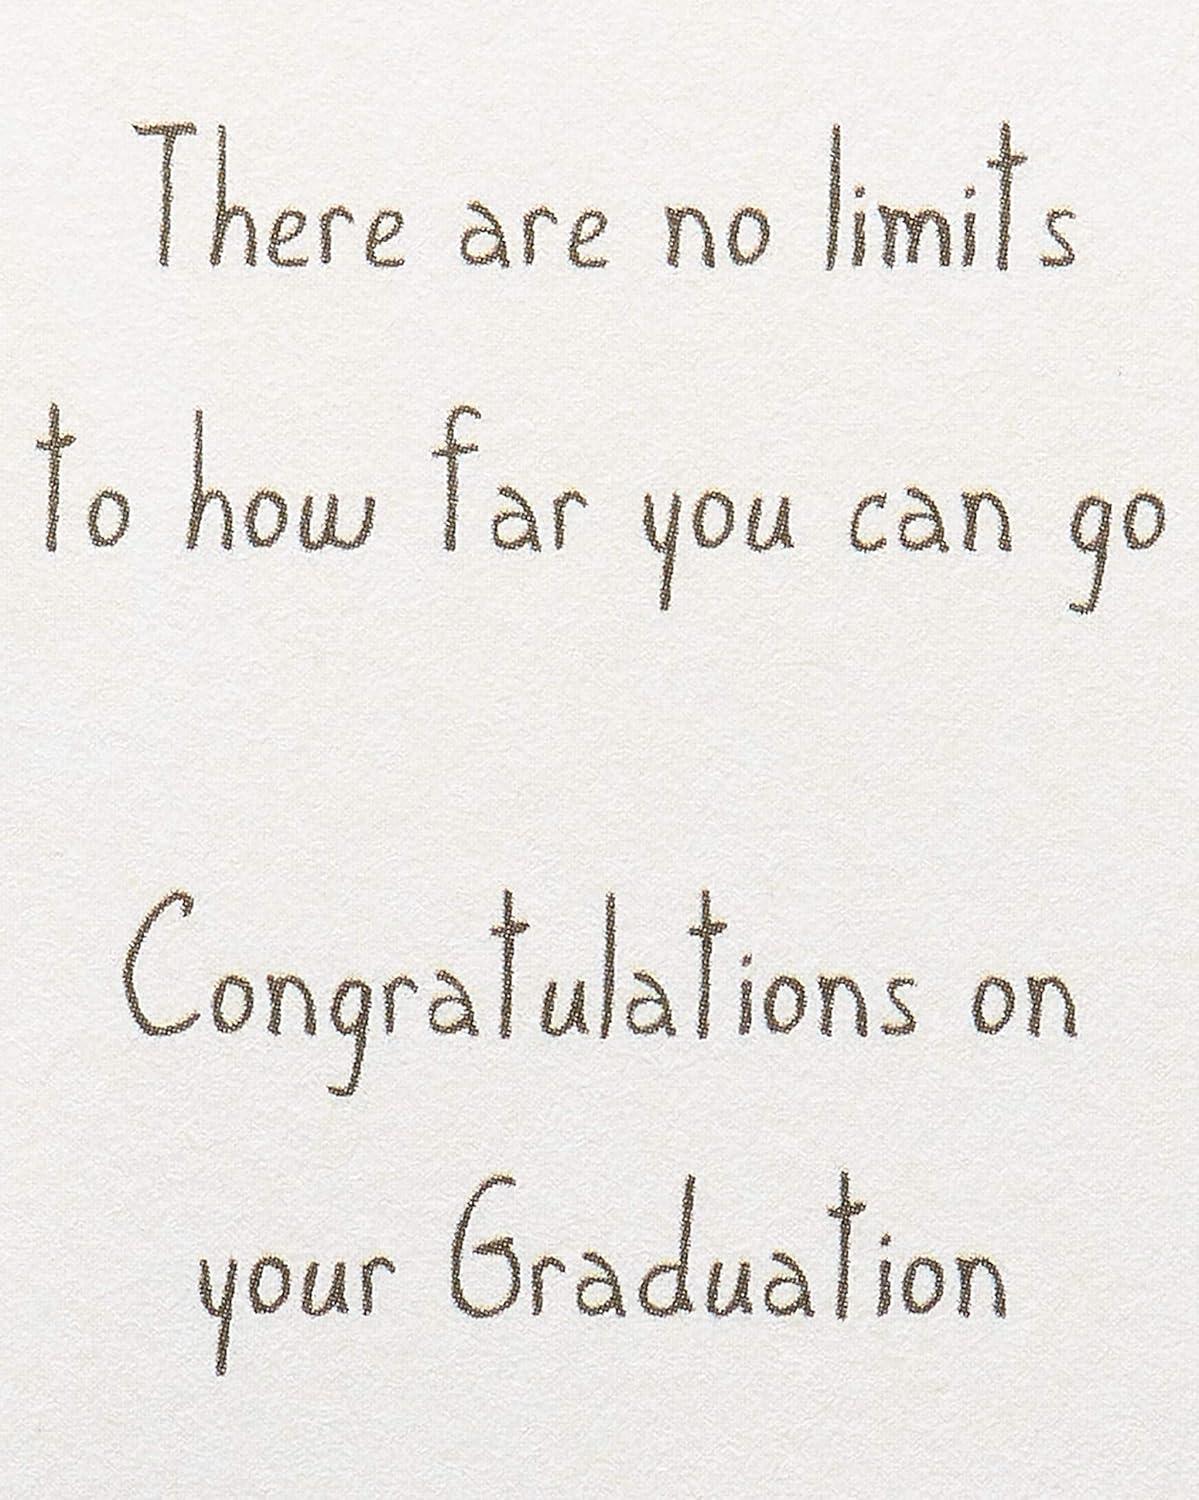 There are no limits
to how far you can go
Congratulations on
your Graduation